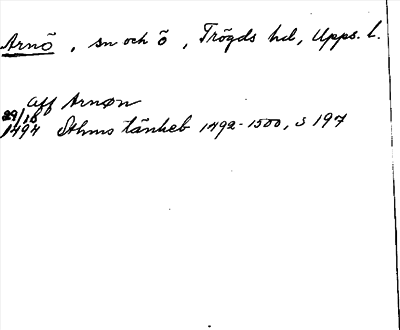 Arnö, sn och ö, Trögds hd, Upps. l.
Aff Arnøn
29/10
1494 Sthms tänkeb 1492-1500, s 197